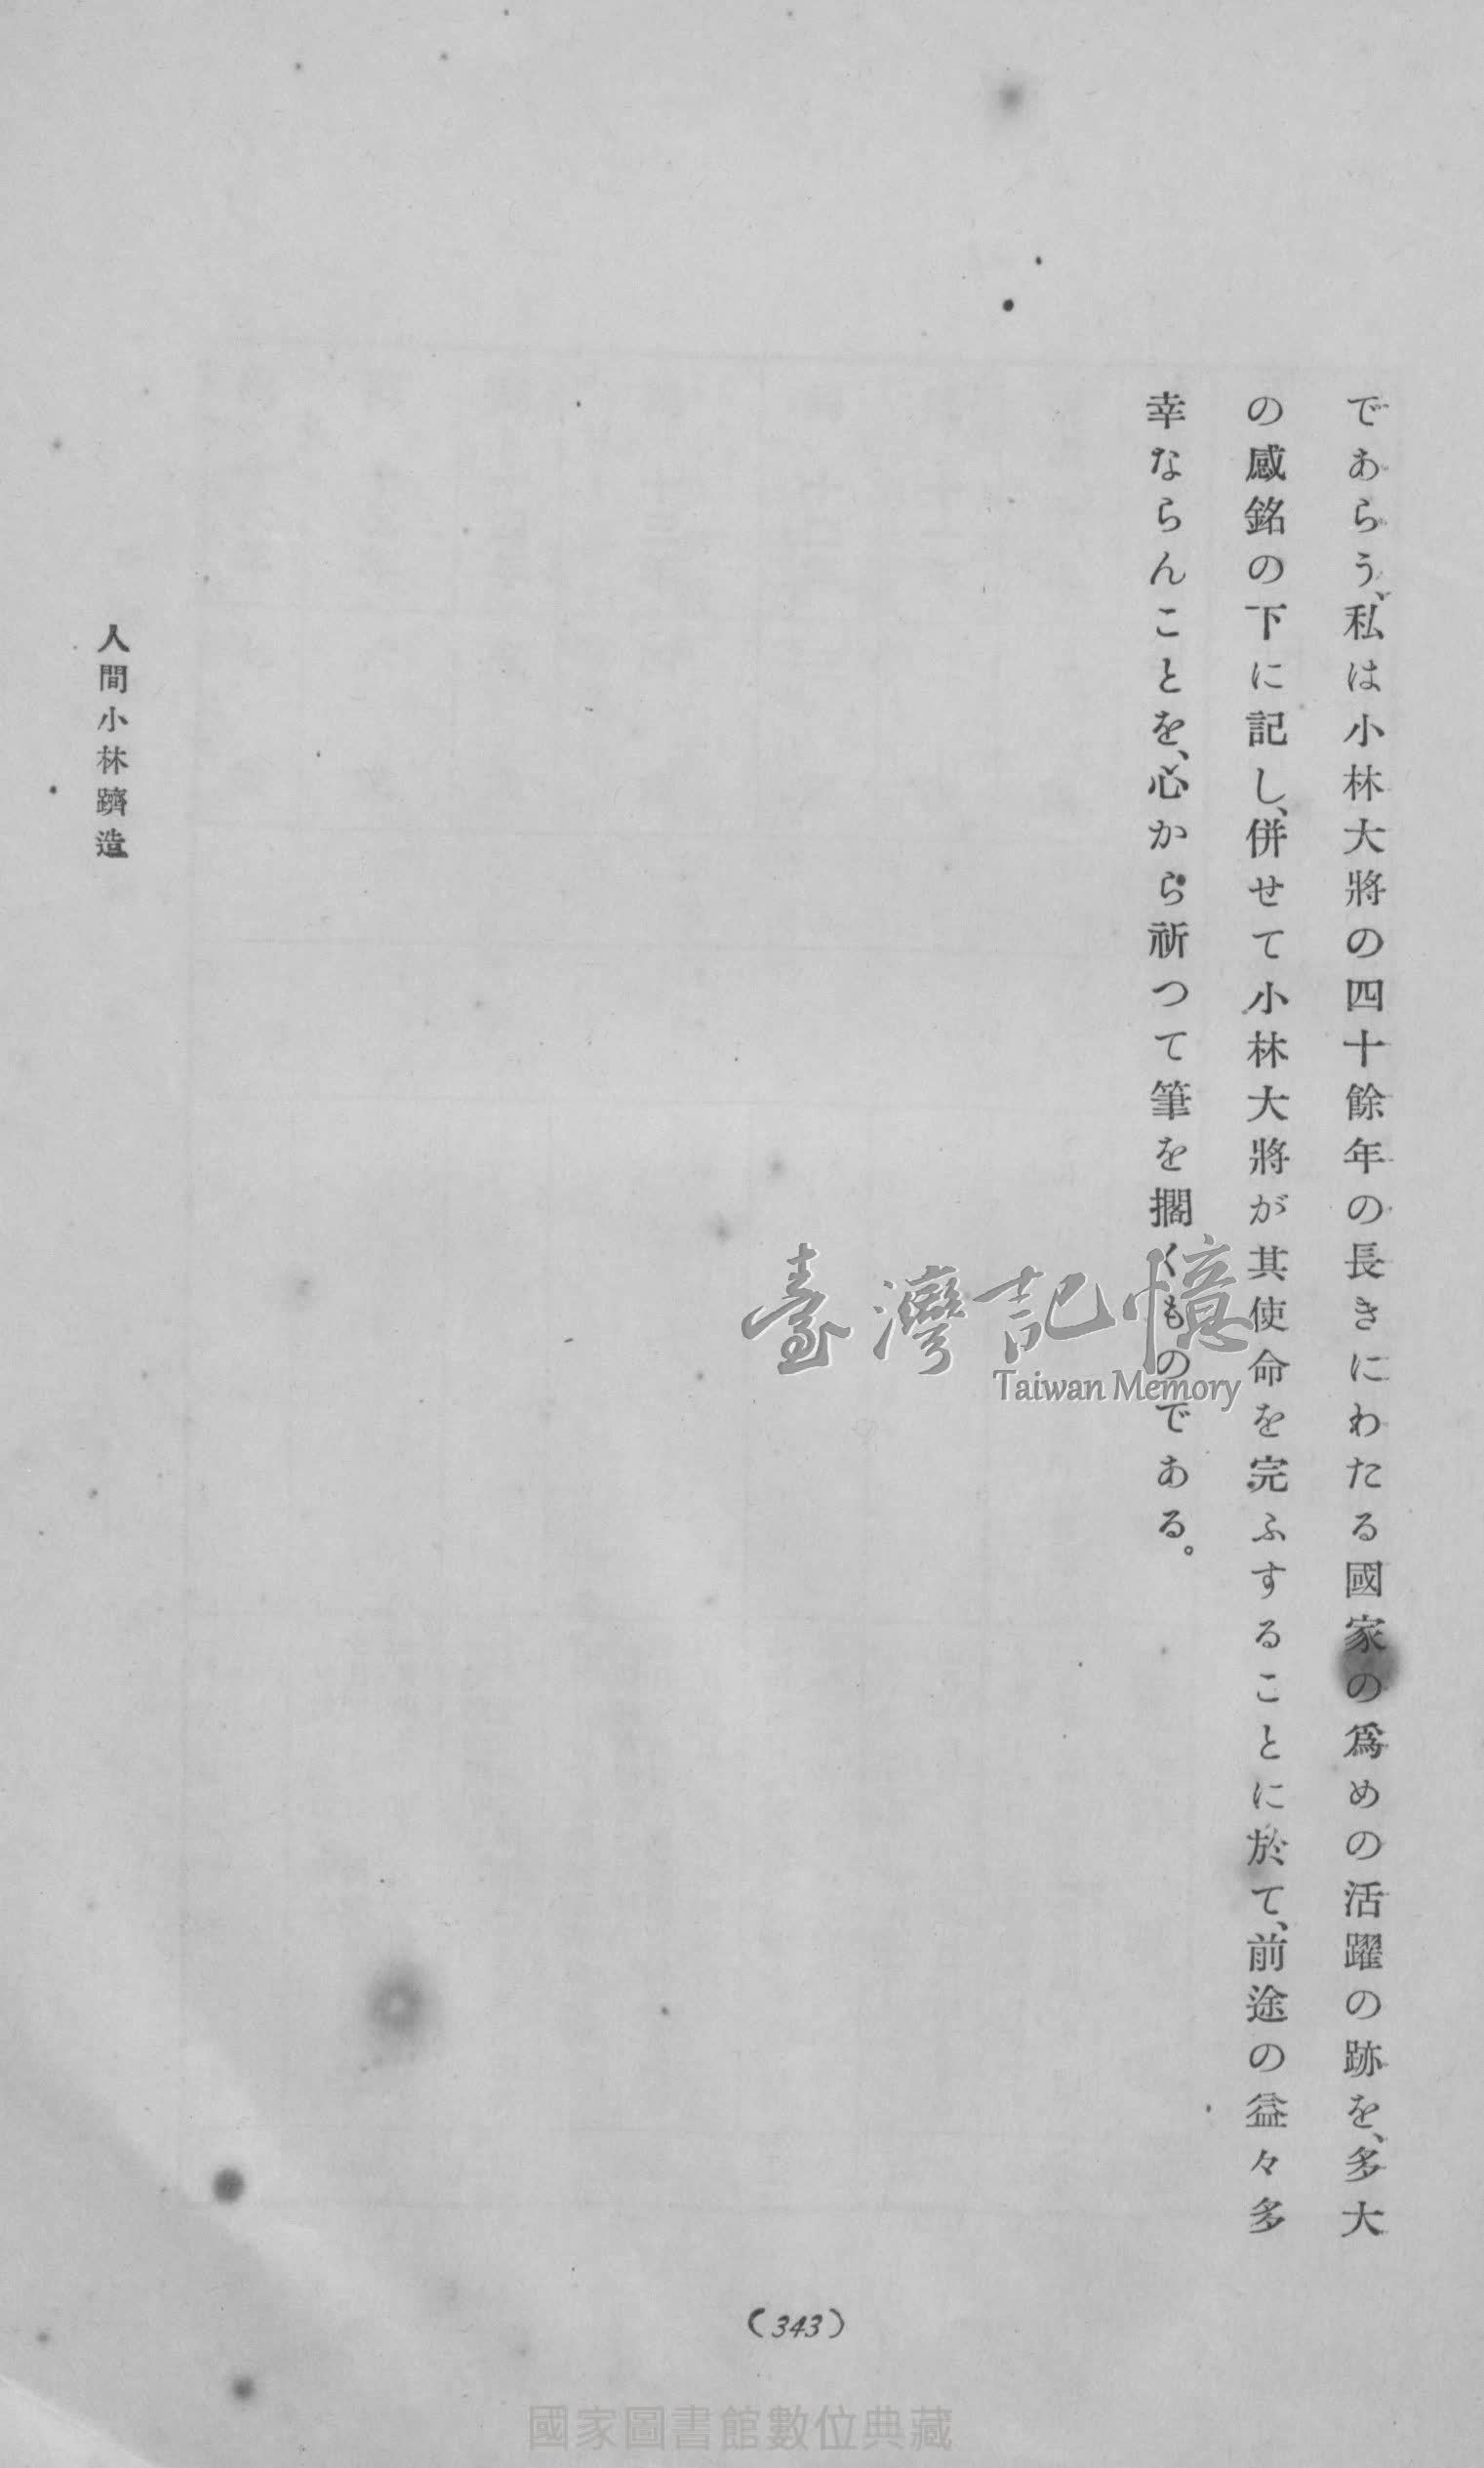 であらう、私は小林大將の四十餘年の長きにわたる國家の爲めの活躍の跡を、多大
の感銘の下に記し、併せて小林大將が其使命を完ふすることに於て、前途の益々多
幸ならんことを、心から祈つて筆を擱くものである。
人間小林躋造
(343)
臺灣記憶
Taiwan Memory
國家圖書館數位典藏